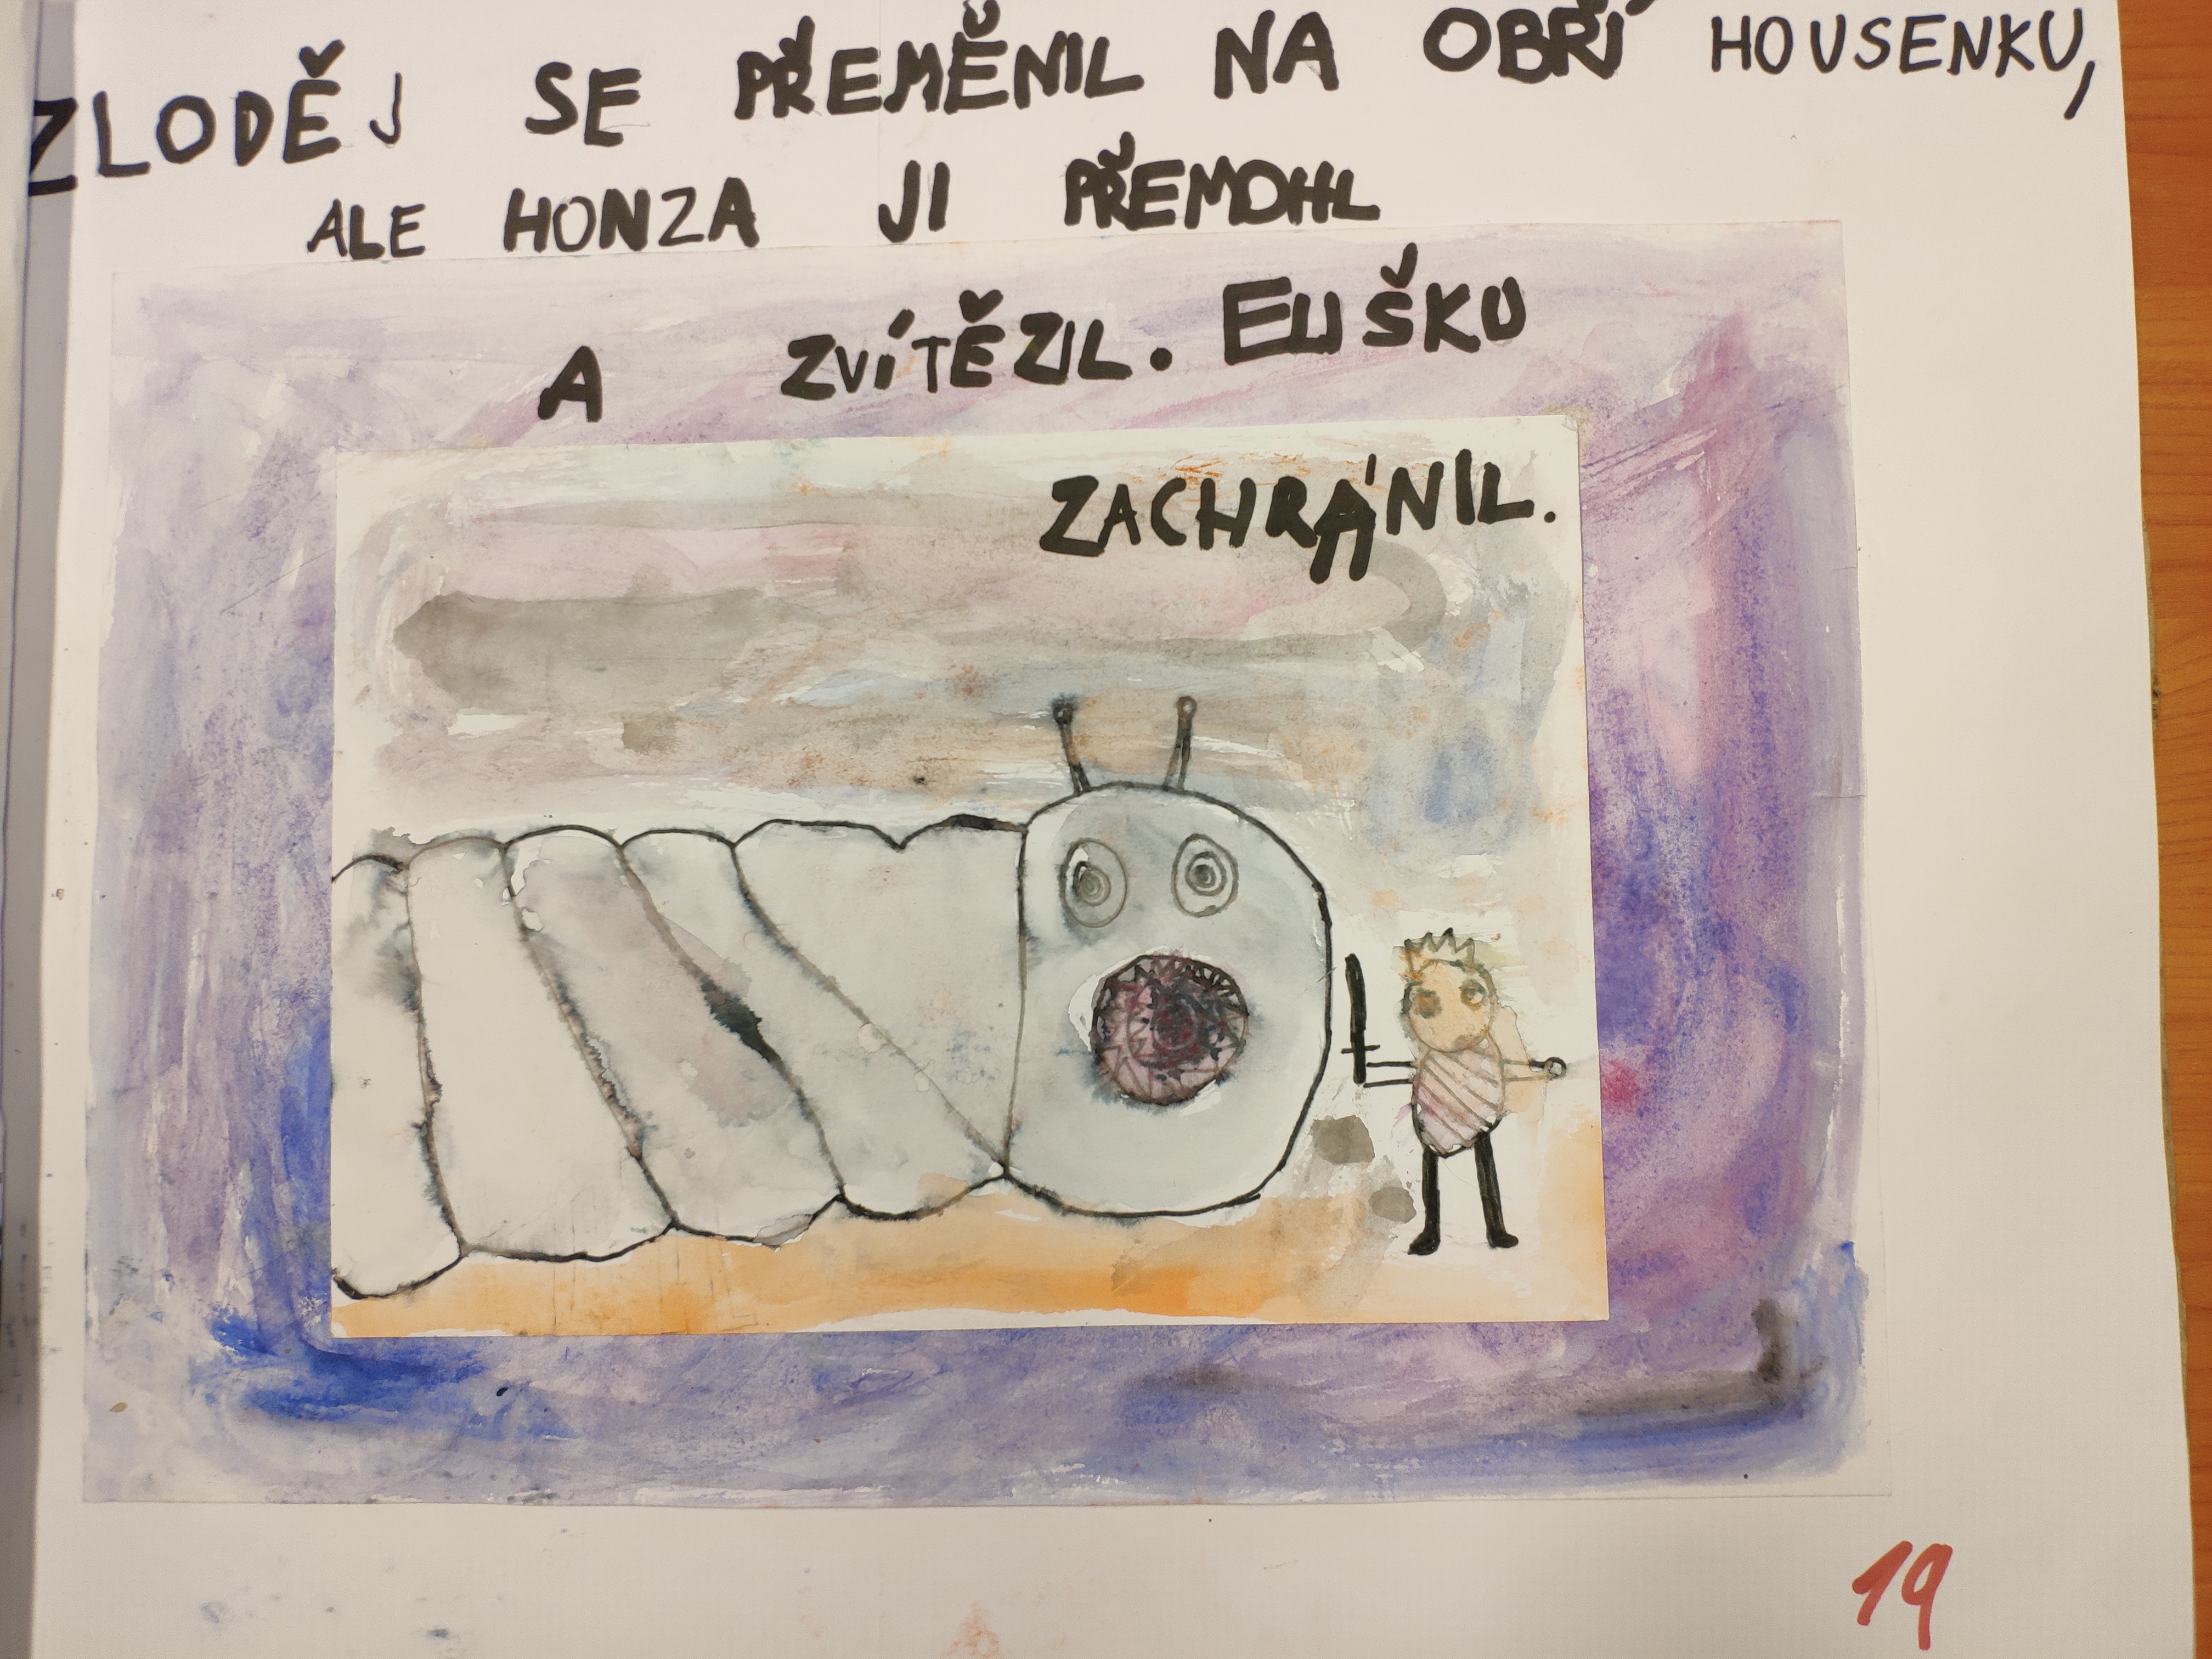 ZLODĚJ SE PŘEMĚNIL NA OBŘÍ HOUSENKU,
ALE HONZA JI PŘEMOHL
A ZVÍTĚZIL. ELIŠKU
ZACHRÁNIL.
19